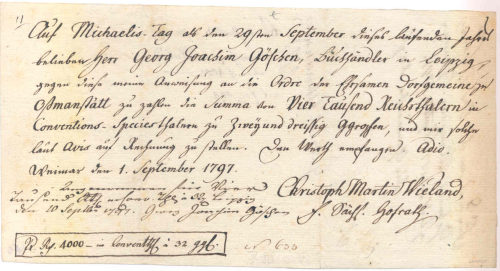 Auf Michaelis-Tag als den 29sten September dieses laufenden Jahrs
belieben Herr Georg Joachim Göschen, Buchhändler in Leipzig,
gegen diese meine Anweisung an die Ordre der Ehrsamen Dorfgemeine zu
Oßmanstätt zu zahlen die Summa von Vier Tausend Reichsthalern in
Conventions-Speciesthalern zu Zwey und dreissig Ggroschen, und mir solche
laut Avis auf Rechnung zu stellen. Den Werth empfangen. Adio.
Weimar den 1. September 1797.
Christoph Martin Wieland,
Tausend
den 10 Septbr 1797. Georg Joachim Göschen
F. Sächs. Hofrath.
Pr. Rf. 4000 – in Convent à 32 ggl.